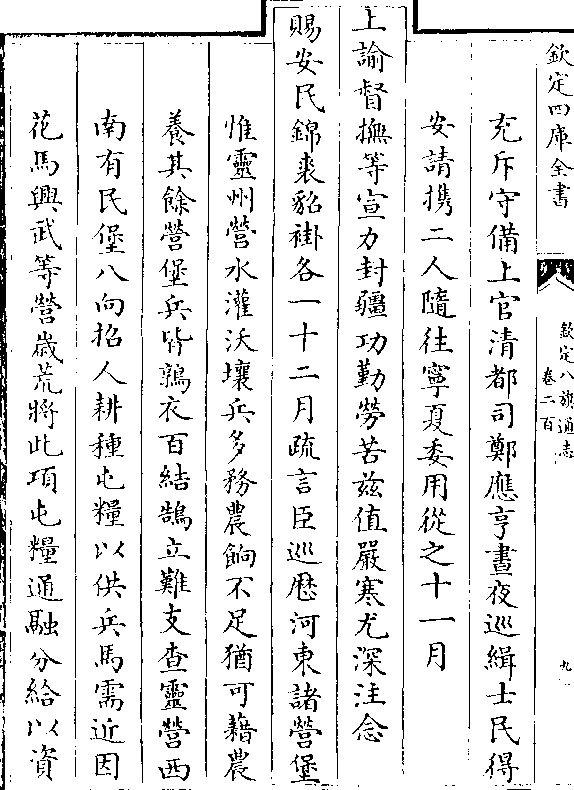 欽定四庫全書
欽定八旗通志
卷二百
九
充斥守備上官清都司鄭應亨晝夜巡緝士民得
安請攜二人隨往寧夏委用從之十一月
上諭督撫等宣力封疆功勤勞苦兹值嚴寒尤深注念
賜安民錦裘貂褂各一十二月疏言臣巡厯河東諸營堡
惟靈州營水灌沃壤兵多務農餉不足猶可藉農
養其餘營堡兵皆鶉衣百結鵠立難支查靈營西
南有民堡八向招人耕種屯糧以供兵馬需近因
花馬興武等營嵗荒將此項屯糧通融分給以資